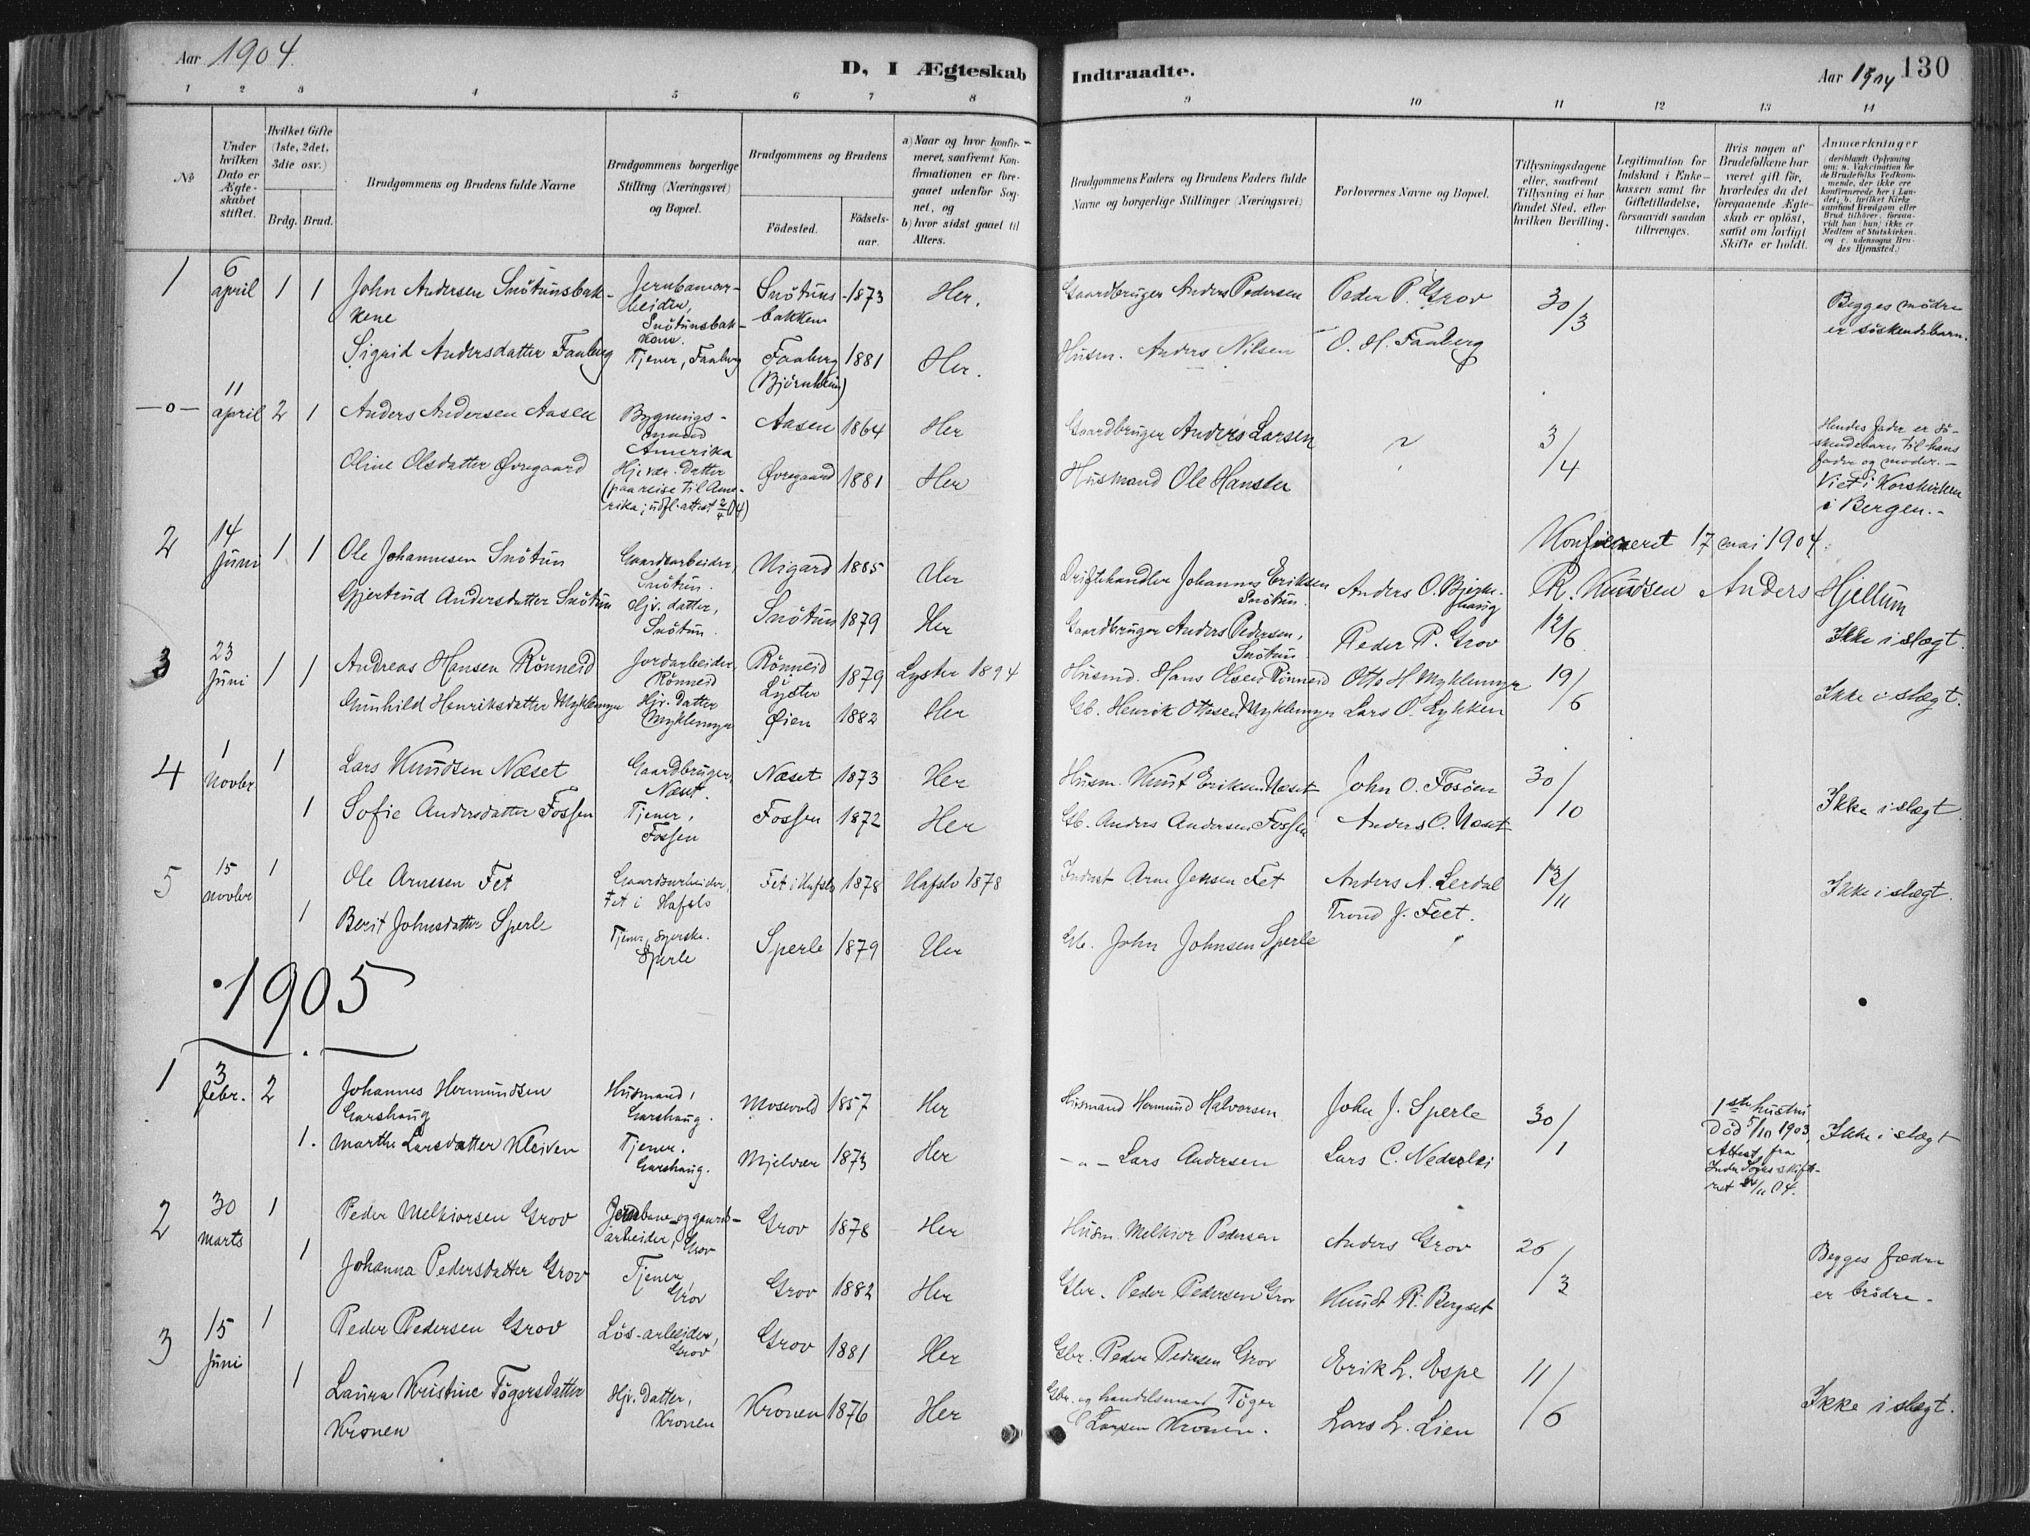 Aar 1904.
D, I Ægteskab Indtraadte.
Aar 1904 130
1 2 3 4 5 6 7 8 9 10 11 12 13 14
No
Under hvilken Dato er Ægteskabet stiftet.
Hvilket Gifte (1ste, 2det, 3die osv.)
Brdg. Brud.
Brudgommens og Brudens fulde Navne
Brudgommens borgerlige Stilling (Næringsvei) og Bopæl.
Brudgommens og Brudens
Fødested. Fødselsaar.
a) Naar og hvor konfirmeret, saafremt Konfirmationen er foregaaet udenfor Sognet, og
b) hvor sidst gaaet til Alters.
Brudgommens Faders og Brudens Faders fulde Navne og borgerlige Stillinger (Næringsvei)
Forlovernes Navne og Bopæl.
Tillysningsdagene eller, saafremt Tillysning ei har fundet Sted, efter hvilken Bevilling.
Legitimation for Indskud i Enkekassen samt for Giftetilladelse, forsaavidt saadan tiltrænges.
Hvis nogen af Brudefolkene har været gift før, hvorledes da det foregaaende Ægteskab er opløst, samt om lovligt Skifte er holdt.
Anmærkninger
1 6 april 1 1 John Andersen Snötunsbakkene Jernbanearbeider, Snötunsbakkene Snötunsbakken 1873 Her. Gaardbruger Anders Pedersen Peder P. Grov 30/3 Begges mödre er söskendebarn.
Sigrid Andersdatter Faaberg Tjener, Faaberg Faaberg (Björnheim) 1881 Her. Husm. Anders Nilsen O. H. Faaberg
—o— 11 april 2 1 Anders Andersen Aasen Bygningsmand Amerika Aasen 1864 Her Gaardbruger Anders Larsen ? 3/4 Hendes fader er söskendebarn til hans fader og moder.— Viet i Korskirken i Bergen.—
Oline Olsdatter Øvregaard Hjv. Datter (paa reise til Amerika; udfl. attest 2/4 04) Øvregaard 1881 Her Husmand Ole Hansen
2 14 Juni 1 1 Ole Johannesen Snötun Gaardsarbeider, Snötun. Nigard 1885 Her Driftehandler Johannes Eriksen Snötun. Anders O. Bjerkehaug
Konfereret 17 mai 1904.
R. Knudsen Anders Hjellum
Gjertrud Andersdatter Snötun Hjv. datter, Snötun. Snötun 1879 Her Gaardbruger Anders Pedersen, Snötun Peder P. Grov 12/6 Ikke i slægt.
3 23 Juni 1 1 Andreas Hansen Rönneid Jordarbeider Rönneid Rönneid Lyster 1879 Lyster 1894 Husmd. Hans Olsen Rönneid Otto H Myklemyr 19/6 Ikke i slægt.
Gunhild Henriksdatter Myklemyr Hjv. Datter Myklemyr Øien 1882 Her Gb. Henrik Ottesen Myklemyr Lars O. Lykken
4 1 Novbr 1 Lars Knudsen Næset Gaardbruger, Næset. Næset 1873 Her Husm. Knut Eriksen Næset John O. Fosöen 30/10 Ikke i slægt.
1 Sofie Andersdatter Fossen Tjener, Fossen Fossen 1872 Her Gb. Anders Andersen Fossen Anders O. Næset
5 15 novbr 1 Ole Arnesen Fet Gaardsarbeider, Fet i Hafslo Fet i Hafslo 1878 Hafslo 1878 Inderst Arne Jensen Fet Anders A. Lerdal 13/11 Ikke i slægt.
1 Berit Johnsdatter Sperle Tjener, syerske. Sperle Sperle 1879 Her Gb. John Johnsen Sperle Trond J. Feet.
1905
1 3 febr. 2 Johannes Hermundsen Garshaug Husmand, Garshaug. Mosevold 1857 Her Husmand Hermund Halvorsen John J. Sperle 30/1 1ste hustru Död 5/10 1903, Attest fra Indre Sogns skifteret 04. Ikke i slægt
1. Marthe Larsdatter Kleiven Tjener. Garshaug. Mjelvær 1873 Her —"— Lars Andersen Lars C. Nederlei
2 30 marts 1 Peder Melkiorsen Grov Jernbane- og gaardsarbeider, Grov Grov 1878 Her Husm. Melkior Pedersen Anders Grov 26/3 Begges fædre er brödre.
1 Johanna Pedersdatter Grov Tjener, Grov Grov 1882 Her Gbr. Peder Pedersen Grov Knudt R. Bergset
3 15 Juni 1 Peder Pedersen Grov Lös-arbeider, Grov Grov 1881 Her Gbr. Peder Pedersen Grov Erik L. Espe 11/6 Ikke i slægt.
1 Laura Kristine Tögersdatter Kronen Hjv. Datter, Kronen Kronen 1876 Her Gbr. og handelsmand Töger Larsen Kronen. Lars L. Lien